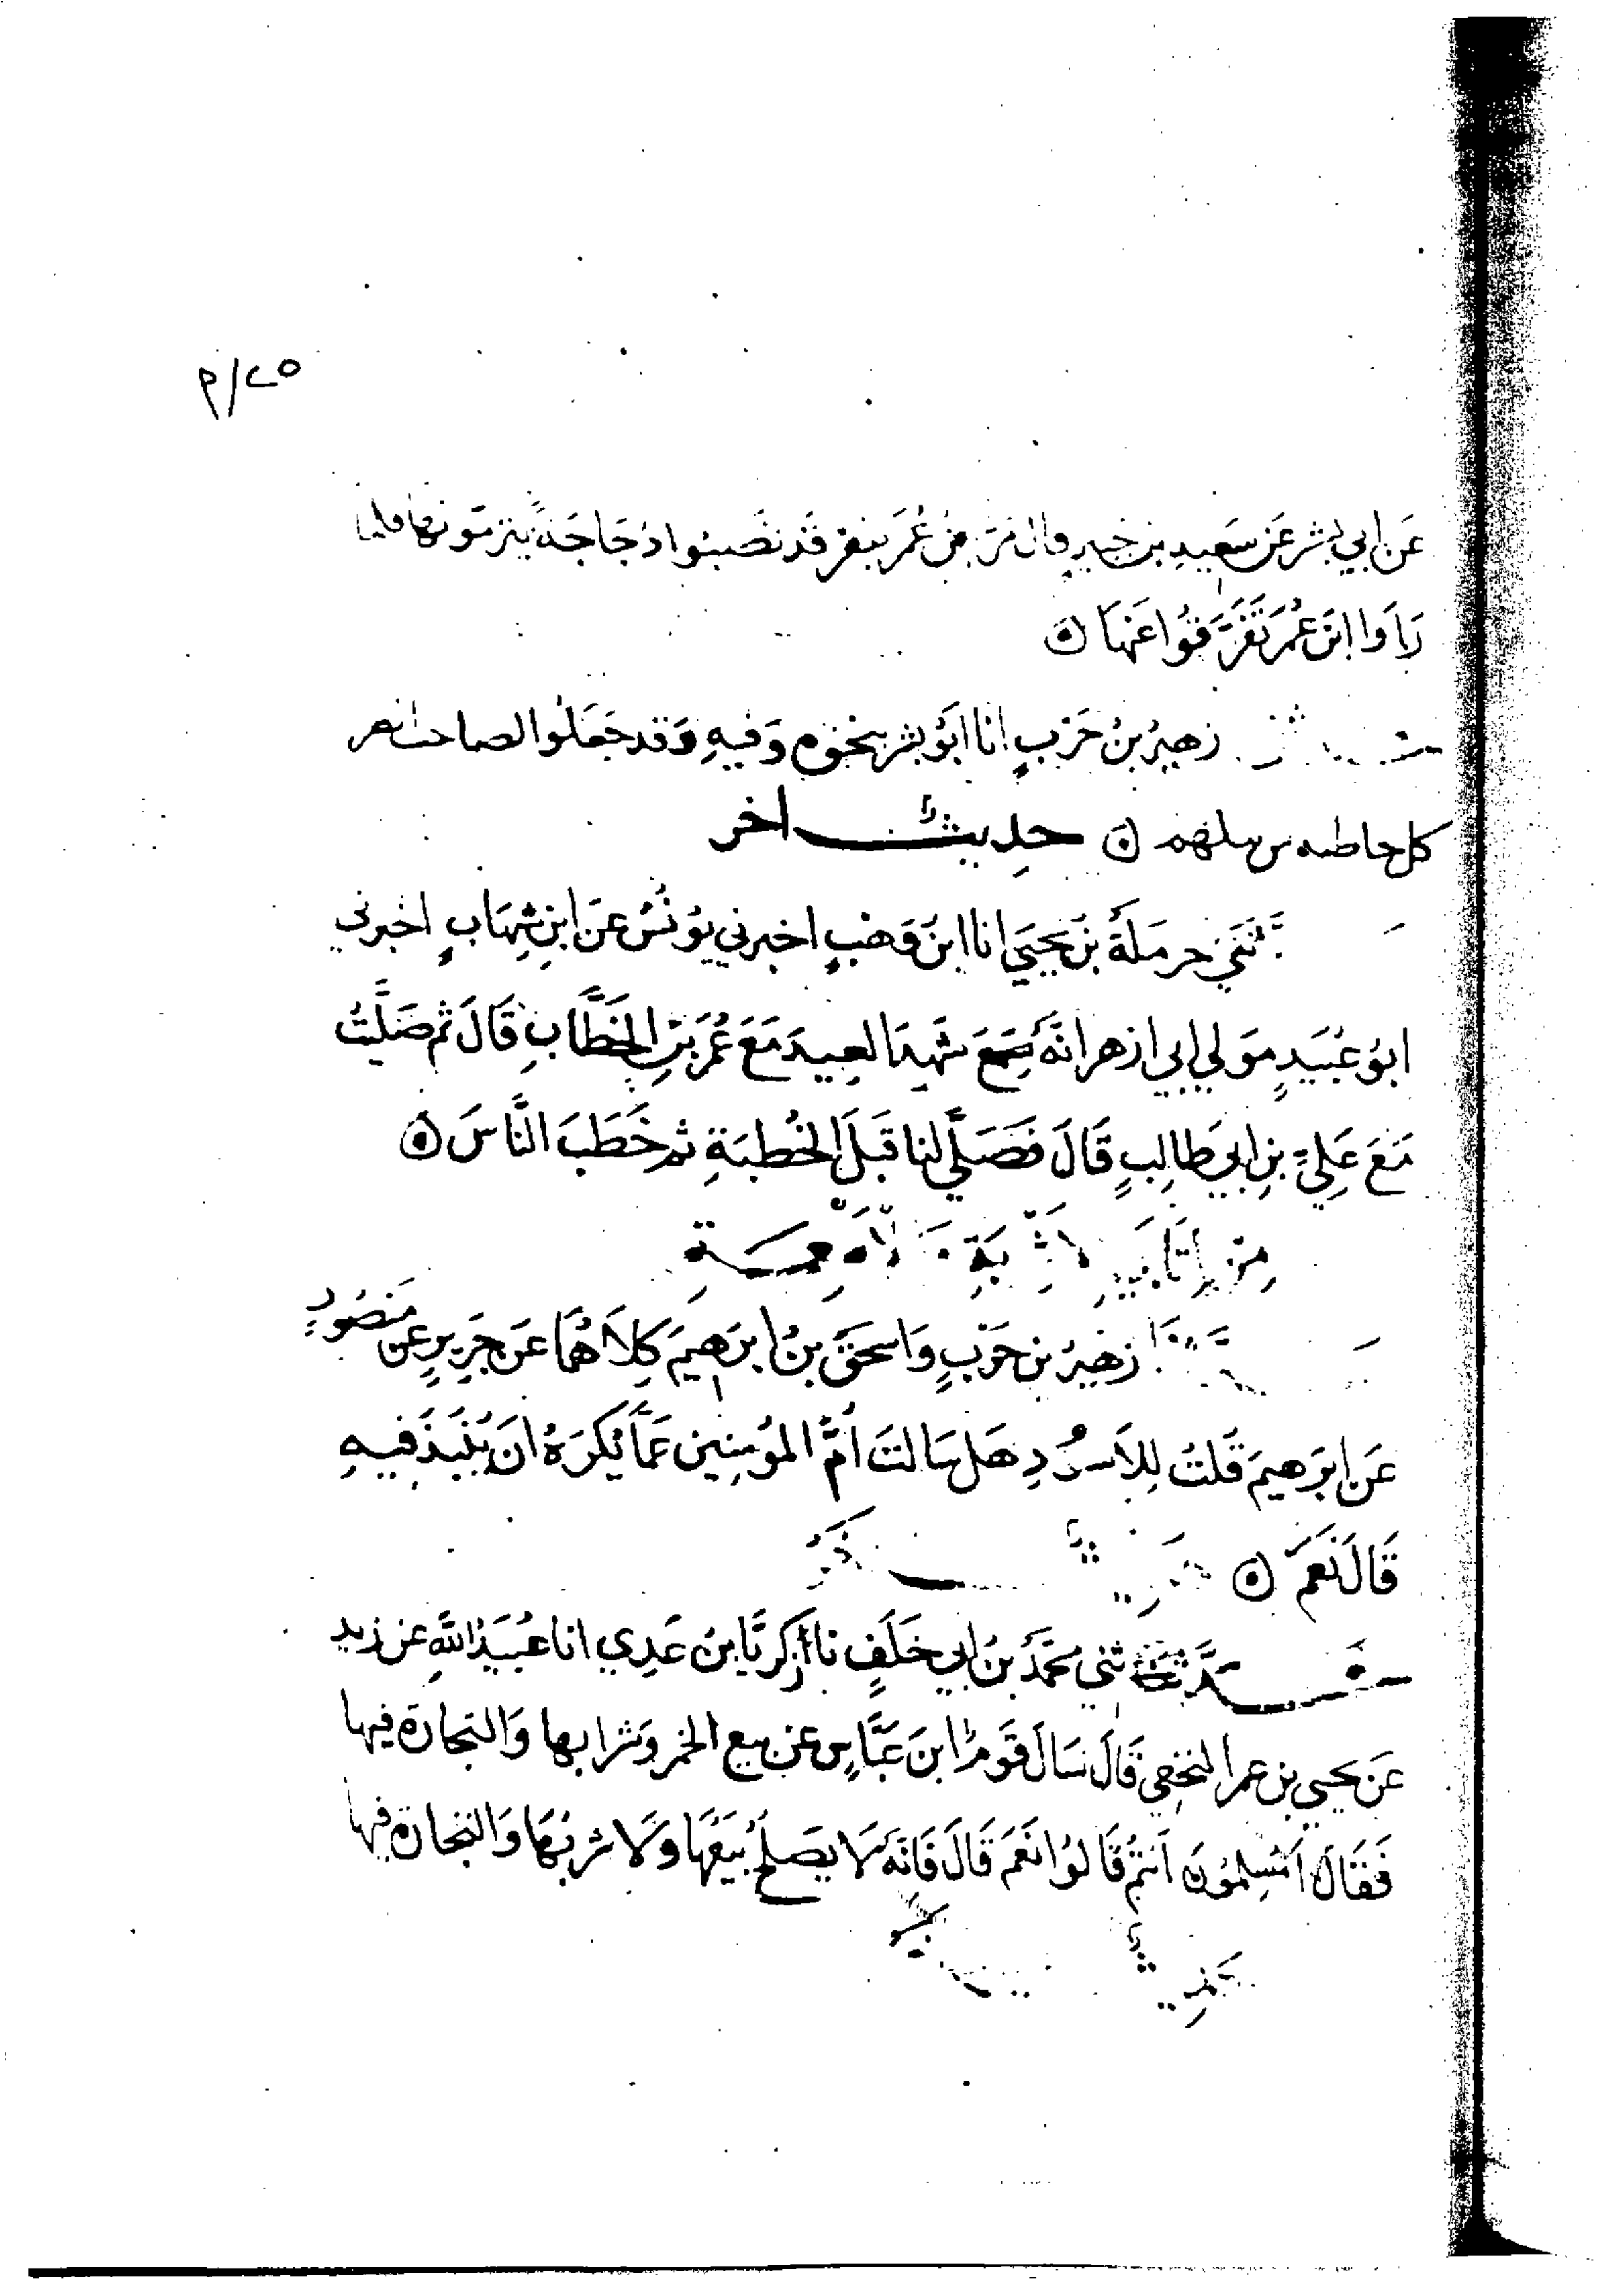 ٢٥/م
عن ابي بشر عن سعيد بن جبير قال مر ابن عمر بنفر قد نصبوا دجاجة يترمونها فلما
رَاوا ابن عُمر تَفَرَّقوا عَنها ٥
زهيرُ بنُ حَرْبٍ انا ابو بشر بنحوه وَفيهِ وَقد جعَلوا لصاحب الطير
كل خاطئه من نبلهم ٥ حديث اخر
ثني حرملة بن يحيى انا ابن وَهْبٍ اخبرني يونسُ عن ابنِ شِهَابٍ اخبرني
ابو عُبَيدٍ مَولي ابي ازهر انَّه سمع شَهِدَ العِيدَ مَعَ عُمَرَ بنِ الخَطَّابِ قَالَ ثم صَلَّيتُ
مَعَ عَلِيِّ بنِ ابي طالِبٍ قَالَ فَصَلَّي لنا قَبلَ الخُطبَةِ ثم خَطَبَ النَّاسَ ٥
مِن كتاب الاشربة والاطعمة
زهير بن حَرْبٍ وَاسحَقُ بنُ ابرَهِيمَ كِلاَهُمَا عَن جَرِيرٍ عَن مَنصُورٍ
عَن ابرَهيمَ قُلتُ لِلاَسوَدِ هَل سَالتَ اُمَّ المُؤمِنِين عَمَّا يُكرَهُ ان يُنبَذَ فِيهِ
قَالَ نَعَم ٥ حديث اخر
ثني محمَّدُ بنُ ابي خَلَفٍ نا زكريَّا بنُ عَدِي انا عُبَيدُ اللَّهِ عن زيد
عَن يحيي بن عمر النخعي قَالَ سَالَ قَومٌ ابنَ عَبَّاسٍ عن بيع الخمر وَشرابها وَالتجارة فيها
فَقَالَ اَمُسلِمُونَ اَنتُم قَالوُا نَعَم قَالَ فَانَّه لا يَصلُحُ بَيعُهَا وَلا شربُهَا وَالتجارة فيها
حديث اخر